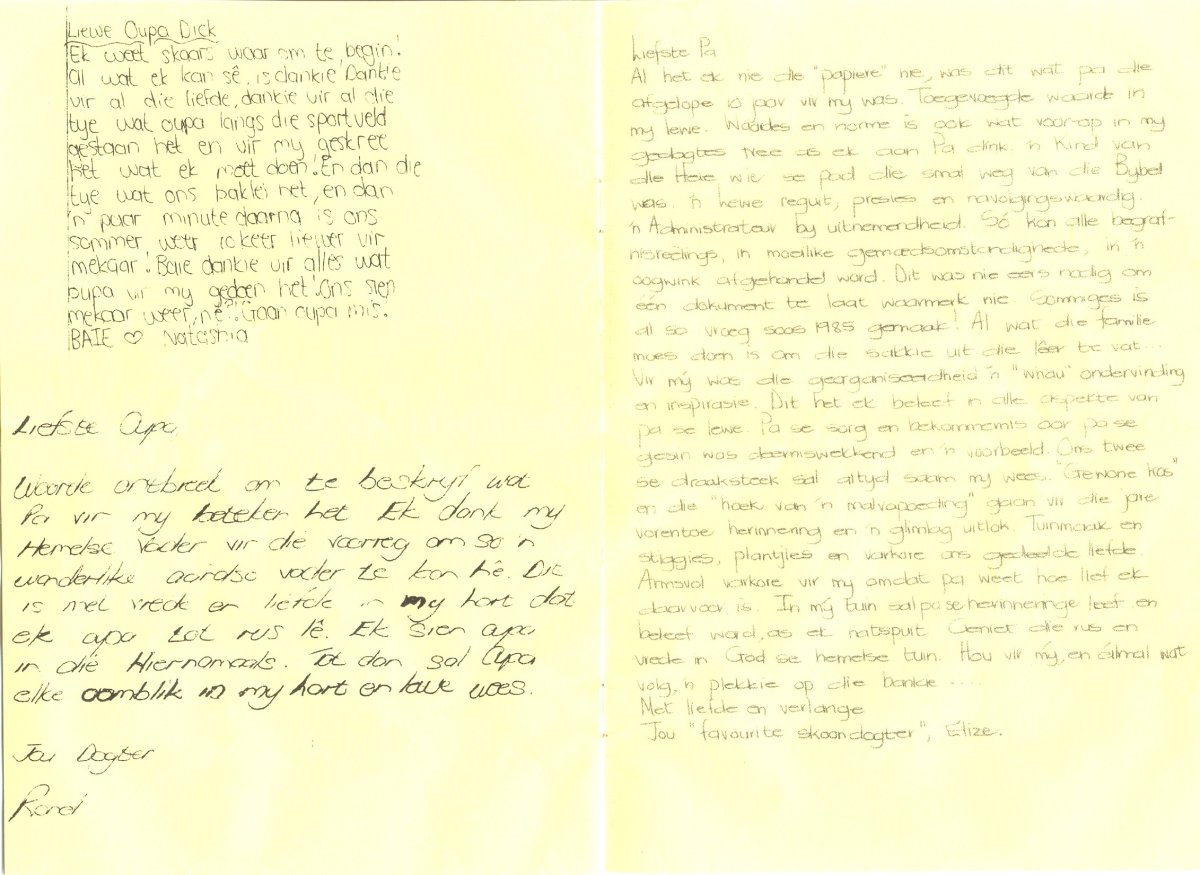 Liewe Oupa Dick
Ek weet skaars waar om te begin!
Al wat ek kan sê is dankie Dankie
vir al die liefde, dankie vir al die
tye wat oupa langs die sportveld
gestaan het en vir my geskree
het wat ek moet doen! En dan die
tye wat ons baklei het, en dan
'n paar minute daarna is ons
sommer weer 10 keer liewer vir
mekaar! Baie dankie vir alles wat
oupa vir my gedoen het! Ons sien
mekaar weer, nê?! Gaan oupa mis.
BAIE ♡ Natashia
Liefste Oupa
Woorde ontbreek om te beskryf wat
Pa vir my beteken het. Ek dank my
Hemelse Vader vir die voorreg om so 'n
wonderlike aardse vader te kon hê. Dit
is met vrede en liefde in my hart dat
ek oupa tot rus lê. Ek sien oupa
in die Hiernamaals. Tot dan sal Oupa
elke oomblik in my hart en lewe wees.
Jou Dogter
Liefste Pa
Al het ek nie die "papiere" nie, was dit wat pa die
afgelope 10 jaar vir my was. Toegevoegde waarde in
my lewe. Waardes en norme is ook wat voor-op in my
gedagtes tree as ek aan Pa dink. 'n Kind van
die Here, wie se pad die smal weg van die Bybel
was. 'n Lewe reguit, presies en navolgingswaardig.
'n Administrateur by uitnemendheid. Só kon alle begraf-
nisreëlings, in moeilike gemoedsomstandighede, in 'n
oogwink afgehandel word. Dit was nie eers nodig om
één dokument te laat waarmerk nie. Sommiges is
al so vroeg soos 1985 gemaak! Al wat die familie
moes doen is om die sakkie uit die lêer te vat...
Vir mý was die georganiseerdheid 'n "whau" ondervinding
en inspirasie. Dit het ek beleef in alle aspekte van
pa se lewe. Pa se sorg en bekommernis oor pa se
gesin was deerniswekkend en 'n voorbeeld. Ons twee
se draaksteek sal altyd saam my wees. "Gewone kos"
en die "hoek van 'n malvapoeding" gaan vir die jare
vorentoe herinnering en 'n glimlag uitlok. Tuinmaak en
stiggies, plantjies en varkore ons gedeelde liefde.
Armsvol varkore vir my omdat pa weet hoe lief ek
daarvoor is. In mý tuin sal pa se herinneringe leef en
beleef word, as ek natspuit. Geniet die rus en
vrede in God se hemelse tuin. Hou vir mý, en álmal wat
volg, 'n plekkie op die bankie ....
Met liefde en verlange
Jou "favourite skoondogter", Elize.